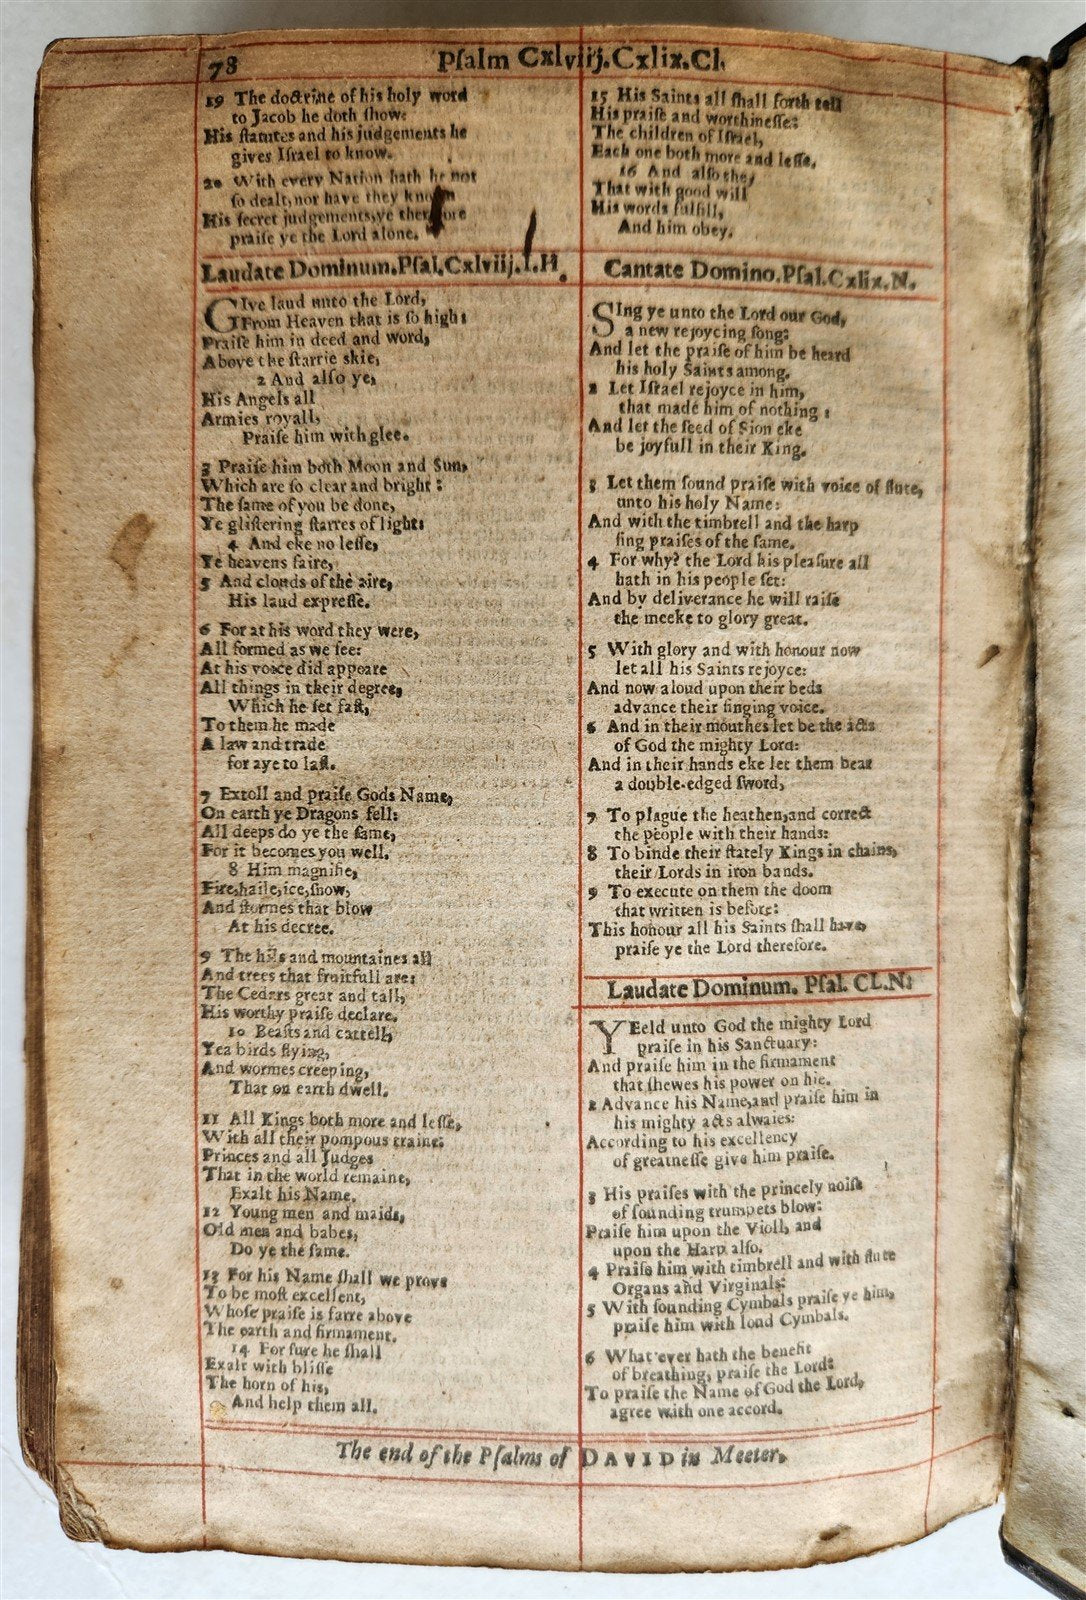 78
Pſalm Cxlviij.Cxlix.Cl.
19 The doctrine of his holy word
to Jacob he doth ſhow:
His ſtatutes and his judgements he
gives Iſrael to know.
20 With every Nation hath he not
ſo dealt, nor have they known
His ſecret judgements, ye therefore
praiſe ye the Lord alone.
Laudate Dominum.Pſal.Cxlviij.I.H.
GIve laud unto the Lord,
From Heaven that is ſo high:
Praiſe him in deed and word,
Above the ſtarrie skie,
2 And alſo ye,
His Angels all
Armies royall,
Praiſe him with glee.
3 Praiſe him both Moon and Sun,
Which are ſo clear and bright:
The ſame of you be done,
Ye gliſtering ſtarres of light:
4 And eke no leſſe,
Ye heavens faire,
5 And clouds of the aire,
His laud expreſſe.
6 For at his word they were,
All formed as we ſee:
At his voice did appeare
All things in their degree,
Which he ſet faſt,
To them he made
A law and trade
for aye to laſt.
7 Extoll and praiſe Gods Name,
On earth ye Dragons fell:
All deeps do ye the ſame,
For it becomes you well.
8 Him magnifie,
Fire, haile, ice, ſnow,
And ſtormes that blow
At his decree.
9 The hills and mountaines all
And trees that fruitfull are:
The Cedars great and tall,
His worthy praiſe declare.
10 Beaſts and cattell,
Yea birds flying,
And wormes creeping,
That on earth dwell.
11 All Kings both more and leſſe,
With all their pompous traine:
Princes and all Judges
That in the world remaine,
Exalt his Name.
12 Young men and maids,
Old men and babes,
Do ye the ſame.
13 For his Name ſhall we prove
To be moſt excellent,
Whoſe praiſe is farre above
The earth and firmament.
14 For ſure he ſhall
Exalt with bliſſe
The horn of his,
And help them all.
15 His Saints all ſhall forth tell
His praiſe and worthineſſe:
The children of Iſrael,
Each one both more and leſſe,
16 And alſo the,
That with good will
His words fulfill,
And him obey.
Cantate Domino.Pſal.Cxlix.N.
SIng ye unto the Lord our God,
a new rejoycing ſong:
And let the praiſe of him be heard
his holy Saints among.
2 Let Iſrael rejoyce in him,
that made him of nothing:
And let the ſeed of Sion eke
be joyfull in their King.
3 Let them ſound praiſe with voice of flute,
unto his holy Name:
And with the timbrell and the harp
ſing praiſes of the ſame.
4 For why? the Lord his pleaſure all
hath in his people ſet:
And by deliverance he will raiſe
the meeke to glory great.
5 With glory and with honour now
let all his Saints rejoyce:
And now aloud upon their beds
advance their ſinging voice.
6 And in their mouthes let be the acts
of God the mighty Lord:
And in their hands eke let them bear
a double-edged ſword,
7 To plague the heathen, and correct
the people with their hands:
8 To binde their ſtately Kings in chains,
their Lords in iron bands.
9 To execute on them the doom
that written is before:
This honour all his Saints ſhall have,
praiſe ye the Lord therefore.
Laudate Dominum. Pſal. CL.N:
YEeld unto God the mighty Lord
praiſe in his Sanctuary:
And praiſe him in the firmament
that ſhewes his power on hie.
2 Advance his Name, and praiſe him in
his mighty acts alwaies:
According to his excellency
of greatneſſe give him praiſe.
3 His praiſes with the princely noiſe
of ſounding trumpets blow:
Praiſe him upon the Violl, and
upon the Harp alſo.
4 Praiſe him with timbrell and with flute
Organs and Virginals:
5 With ſounding Cymbals praiſe ye him,
praiſe him with loud Cymbals.
6 What ever hath the benefit
of breathing, praiſe the Lord:
To praiſe the Name of God the Lord,
agree with one accord.
The end of the Pſalms of DAVID in Meeter.